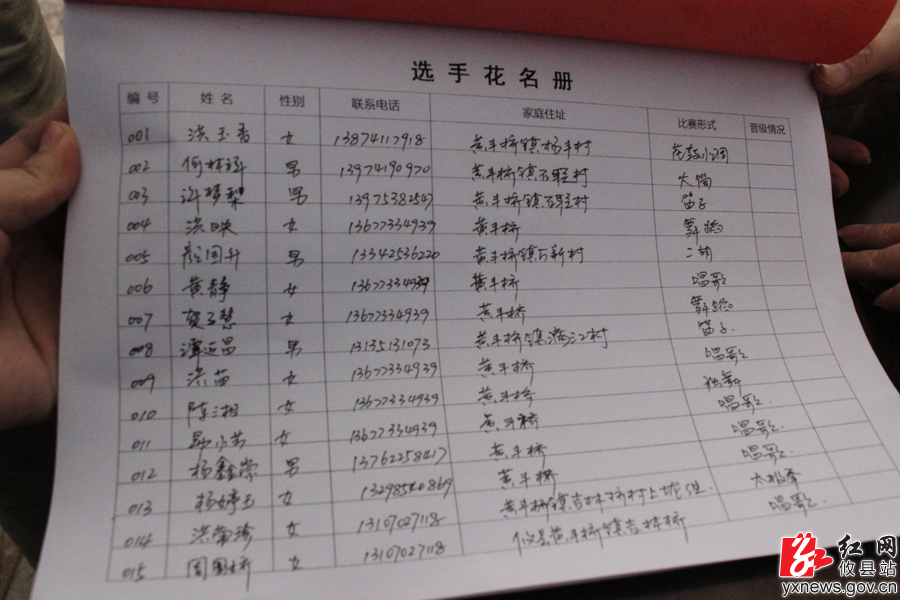 选手花名册
编号 姓名 性别 联系电话 家庭住址 比赛形式 晋级情况
001 洪玉香 女 13874117918 黄丰桥镇杨丰村 花鼓小调
002 何林 男 13974190970 黄丰桥镇石 村 大筒
003 许梦梨 男 13975382547 黄丰桥镇 村 笛子
004 洪映 女 13677334939 黄丰桥 舞蹈
005 颜国升 男 13342536220 黄丰桥镇石新村 二胡
006 黄静 女 13677334939 黄丰桥 唱歌
007 贺子慧 女 13677334939 黄丰桥 舞蹈
008 谭运昌 男 13135131073 黄丰桥镇 江村 笛子
009 洪苗 女 13677334939 黄丰桥 唱歌
010 陈湘 女 13677334939 黄丰桥
011 小芳 女 13677334939 黄丰桥 唱歌
012 杨鑫 男 13762258417 黄丰桥 唱歌
013 杨婷玉 女 13298540869 黄丰桥 唱歌
014 洪菊珍 女 13107027118 黄丰桥镇吉林桥村上 组 太极拳
015 周 女 13107027118 攸县黄丰桥镇吉林桥 唱歌
红网
攸县站
yxnews.gov.cn